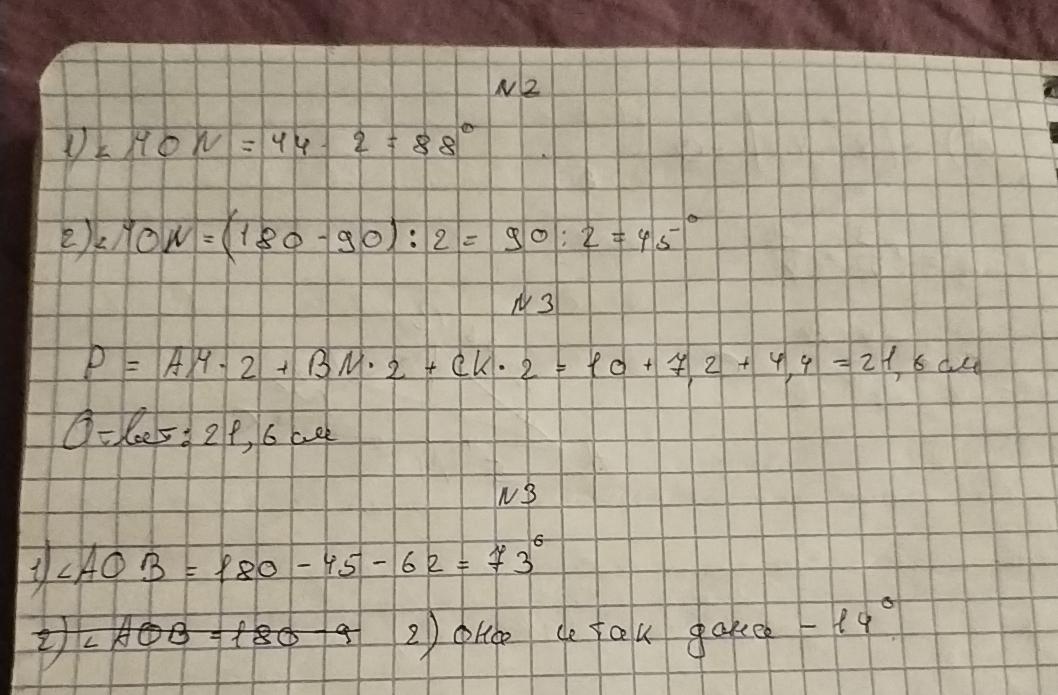 N2
1) ∠MON = 44 · 2 = 88°
2) ∠MON = (180 - 90) : 2 = 90 : 2 = 45°
N3
P = AM · 2 + BN · 2 + CK · 2 = 10 + 7,2 + 4,4 = 21,6 см
Ответ: 21,6 см
N3
1) ∠AOB = 180 - 45 - 62 = 73°
2) ∠AOB = 180 - 9 2) она и так дана - 14°